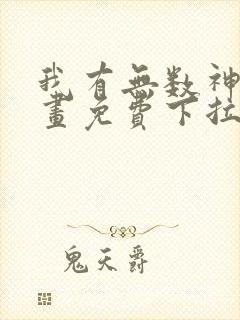 我有無数神
畫免費下拉
鬼天爵